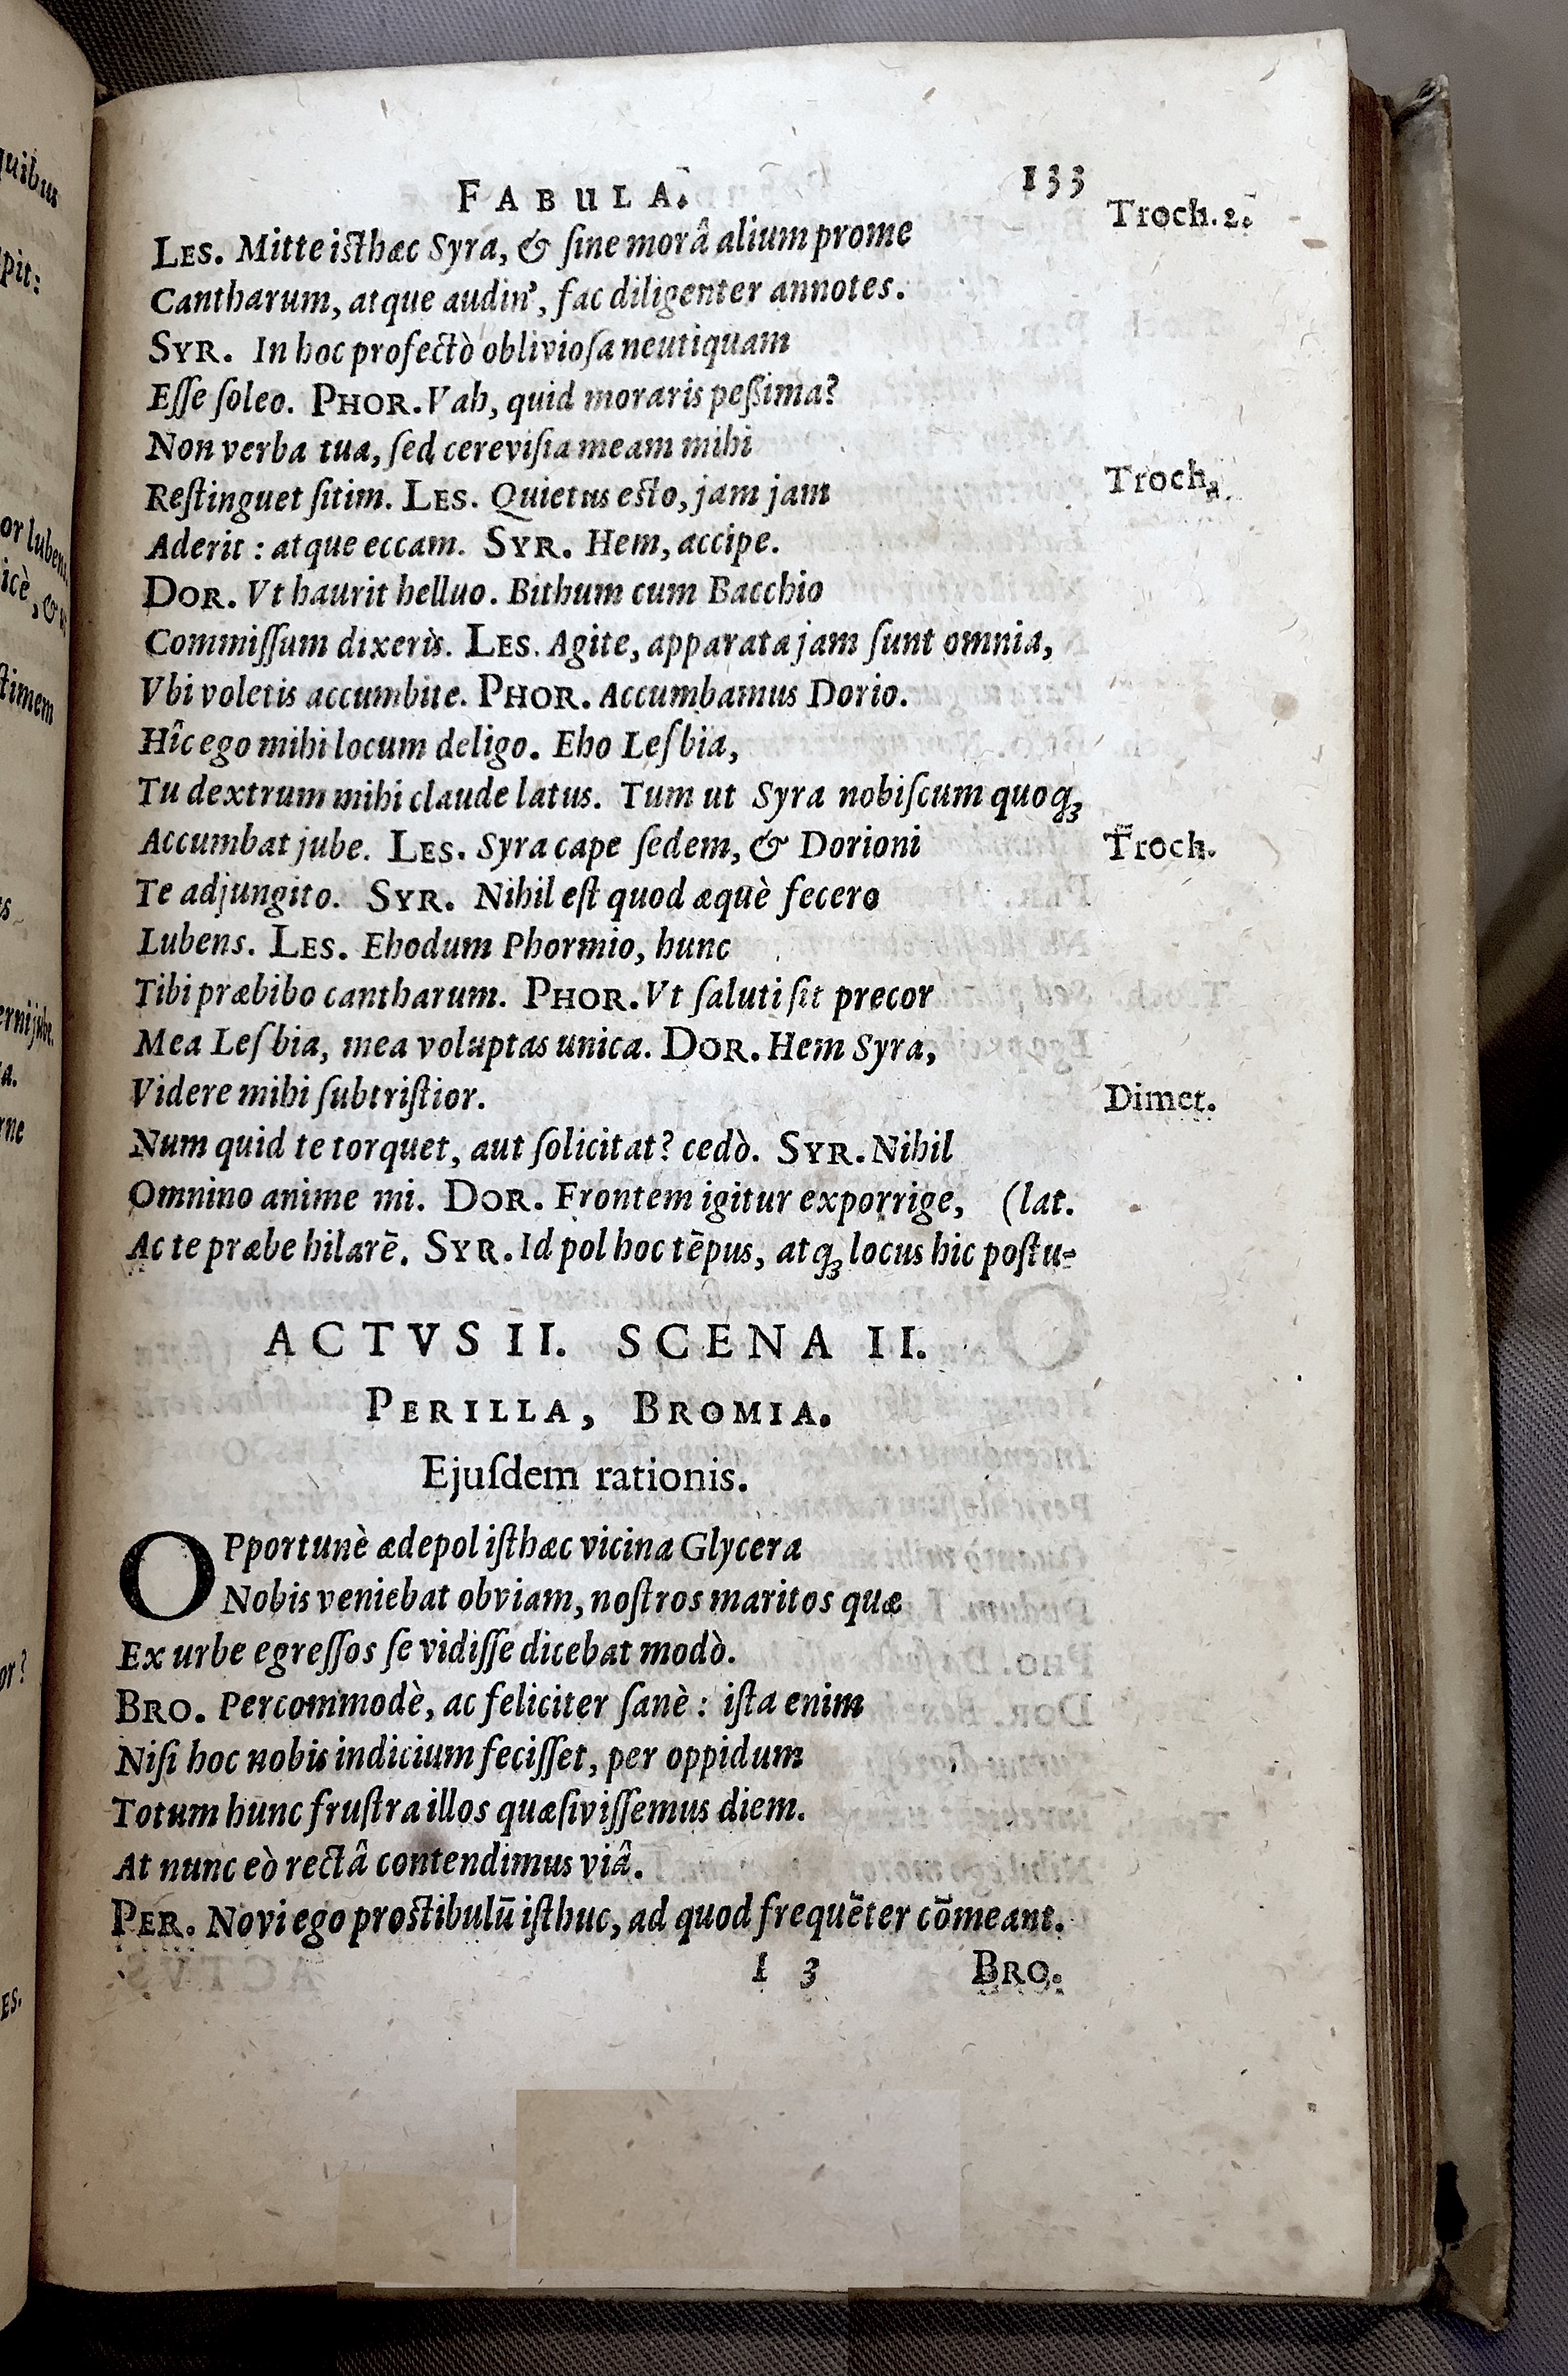 FABULA. 133
LES. Mitte isthæc Syra, & ſine morâ alium prome Troch. 2.
Cantharum, atque audin', fac diligenter annotes.
SYR. In hoc profectò oblivioſa neutiquam
Eſſe ſoleo. PHOR. Vah, quid moraris peſſima?
Non verba tua, ſed cereviſia meam mihi
Reſtinguet ſitim. LES. Quietus eſto, jam jam Troch.
Aderit : atque eccam. SYR. Hem, accipe.
DOR. Vt haurit helluo. Bithum cum Bacchio
Commiſſum dixeris. LES. Agite, apparata jam ſunt omnia,
Vbi voletis accumbite. PHOR. Accumbamus Dorio.
Hîc ego mihi locum deligo. Eho Leſbia,
Tu dextrum mihi claude latus. Tum ut Syra nobiſcum quoqꝫ
Accumbat jube. LES. Syra cape ſedem, & Dorioni Troch.
Te adjungito. SYR. Nihil eſt quod æquè fecero
Lubens. LES. Ehodum Phormio, hunc
Tibi præbibo cantharum. PHOR. Vt ſaluti ſit precor
Mea Leſbia, mea voluptas unica. DOR. Hem Syra,
Videre mihi ſubtriſtior. Dimet.
Num quid te torquet, aut ſolicitat? cedò. SYR. Nihil
Omnino anime mi. DOR. Frontem igitur exporrige, (lat.
Ac te præbe hilarē. SYR. Id pol hoc tēpus, atqꝫ locus hic poſtu-
ACTVS II. SCENA II.
PERILLA, BROMIA.
Ejuſdem rationis.
OPportunè ædepol iſthæc vicina Glycera
Nobis veniebat obviam, noſtros maritos quæ
Ex urbe egreſſos ſe vidiſſe dicebat modò.
BRO. Percommodè, ac feliciter ſanè : iſta enim
Niſi hoc nobis indicium feciſſet, per oppidum
Totum hunc fruſtra illos quæſiviſſemus diem.
At nunc eò rectâ contendimus viâ.
PER. Novi ego proſtibulū iſthuc, ad quod frequēter cōmeant.
I 3 BRO.
quibus
pit:
or lubens
icè, &
ſtimem
ernijube.
a.
rne
or?
ES.